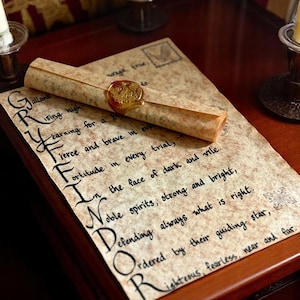 G
Rising
Yearning for a
Fierce and brave in
Fortitude in every trial,
In the face of dark and vile.
Noble spirits, strong and bright,
Defending always what is right.
Ordered by their guiding star,
Righteous, fearless, near and far.